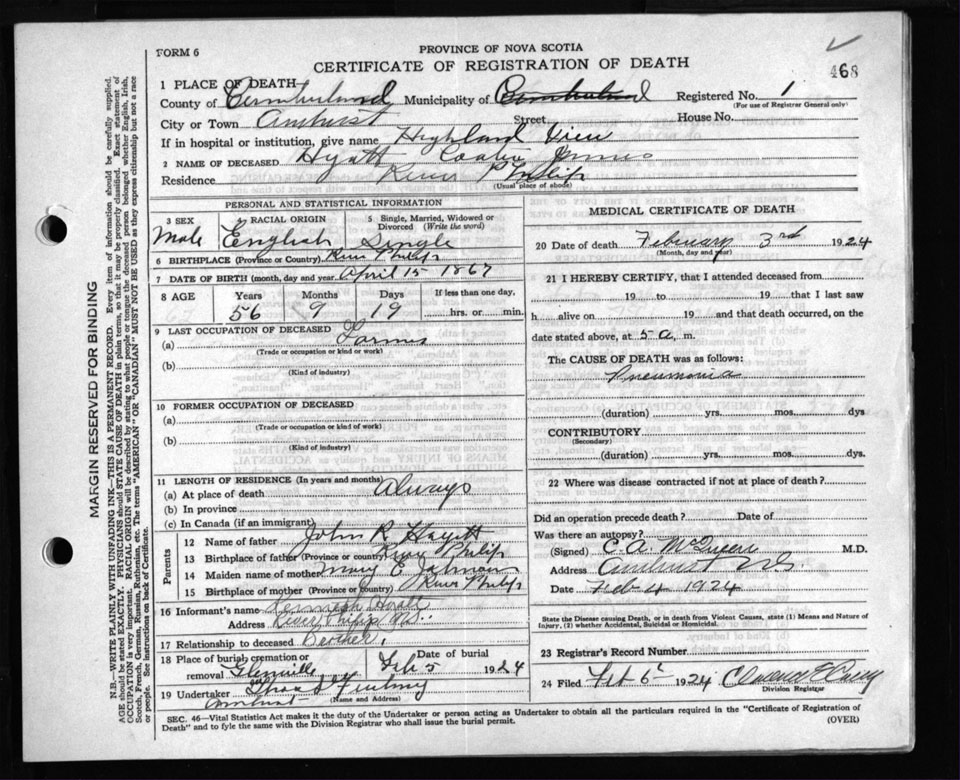 FORM 6
PROVINCE OF NOVA SCOTIA
CERTIFICATE OF REGISTRATION OF DEATH
468
1 PLACE OF DEATH
County of Cumberland Municipality of Cumberland Registered No. 1
(For use of Registrar General only)
City or Town Amherst Street House No.
If in hospital or institution, give name Highland View
2 NAME OF DECEASED Hyatt James
Residence River Philip
(Usual place of abode)
PERSONAL AND STATISTICAL INFORMATION
3 SEX 4 RACIAL ORIGIN 5 Single, Married, Widowed or Divorced (Write the word)
Male English Single
6 BIRTHPLACE (Province or Country) River Philip
7 DATE OF BIRTH (month, day and year) April 15 1867
8 AGE Years Months Days If less than one day,
56 9 19 hrs. or min.
9 LAST OCCUPATION OF DECEASED
(a) Farmer
(Trade or occupation or kind or work)
(b)
(Kind of industry)
10 FORMER OCCUPATION OF DECEASED
(a)
(Trade or occupation or kind or work)
(b)
(Kind of industry)
11 LENGTH OF RESIDENCE (In years and months)
(a) At place of death Always
(b) In province
(c) In Canada (if an immigrant)
Parents
12 Name of father John R Hayett
13 Birthplace of father (Province or country) River Philip
14 Maiden name of mother Mary E
15 Birthplace of mother (Province or country) River Philip
16 Informant's name
Address River Philip N.S.
17 Relationship to deceased Brother
18 Place of burial, cremation or removal Glenville Date of burial Feb 5 1924
19 Undertaker
Amherst (Name and Address)
MEDICAL CERTIFICATE OF DEATH
20 Date of death February 3rd 1924
(Month, day and year)
21 I HEREBY CERTIFY, that I attended deceased from
19 to 19 that I last saw
h alive on 19 and that death occurred, on
date stated above, at 5 a, m.
The CAUSE OF DEATH was as follows:
Pneumonia
(duration) yrs. mos. dys
CONTRIBUTORY
(Secondary)
(duration) yrs. mos. dys.
22 Where was disease contracted if not at place of death?
Did an operation precede death? Date of
Was there an autopsy?
(Signed) C. A. M.D.
Address Amherst N.S.
Date Feb 4 1924
State the Disease causing Death, or in death from Violent Causes, state (1) Means and Nature of Injury, (2) whether Accidental, Suicidal or Homicidal.
23 Registrar's Record Number
24 Filed Feb 6 1924
Division Registrar
SEC. 46—Vital Statistics Act makes it the duty of the Undertaker or person acting as Undertaker to obtain all the particulars required in the "Certificate of Registration of
Death" and to fyle the same with the Division Registrar who shall issue the burial permit.
(OVER)
MARGIN RESERVED FOR BINDING
N.B.—WRITE PLAINLY WITH UNFADING INK—THIS IS A PERMANENT RECORD. Every item of information should be carefully supplied.
AGE should be stated EXACTLY. PHYSICIANS should STATE CAUSE OF DEATH in plain terms, so that it may be properly classified. Exact statement of
OCCUPATION is very important. RACIAL ORIGIN will be described by stating to what people or tongue the deceased person belonged whether English, Irish,
Scotch, French, German, Russian, Ruthenian, etc. The terms "AMERICAN" or "CANADIAN" MUST NOT BE USED as they express citizenship but not a race
or people. See instructions on back of Certificate.